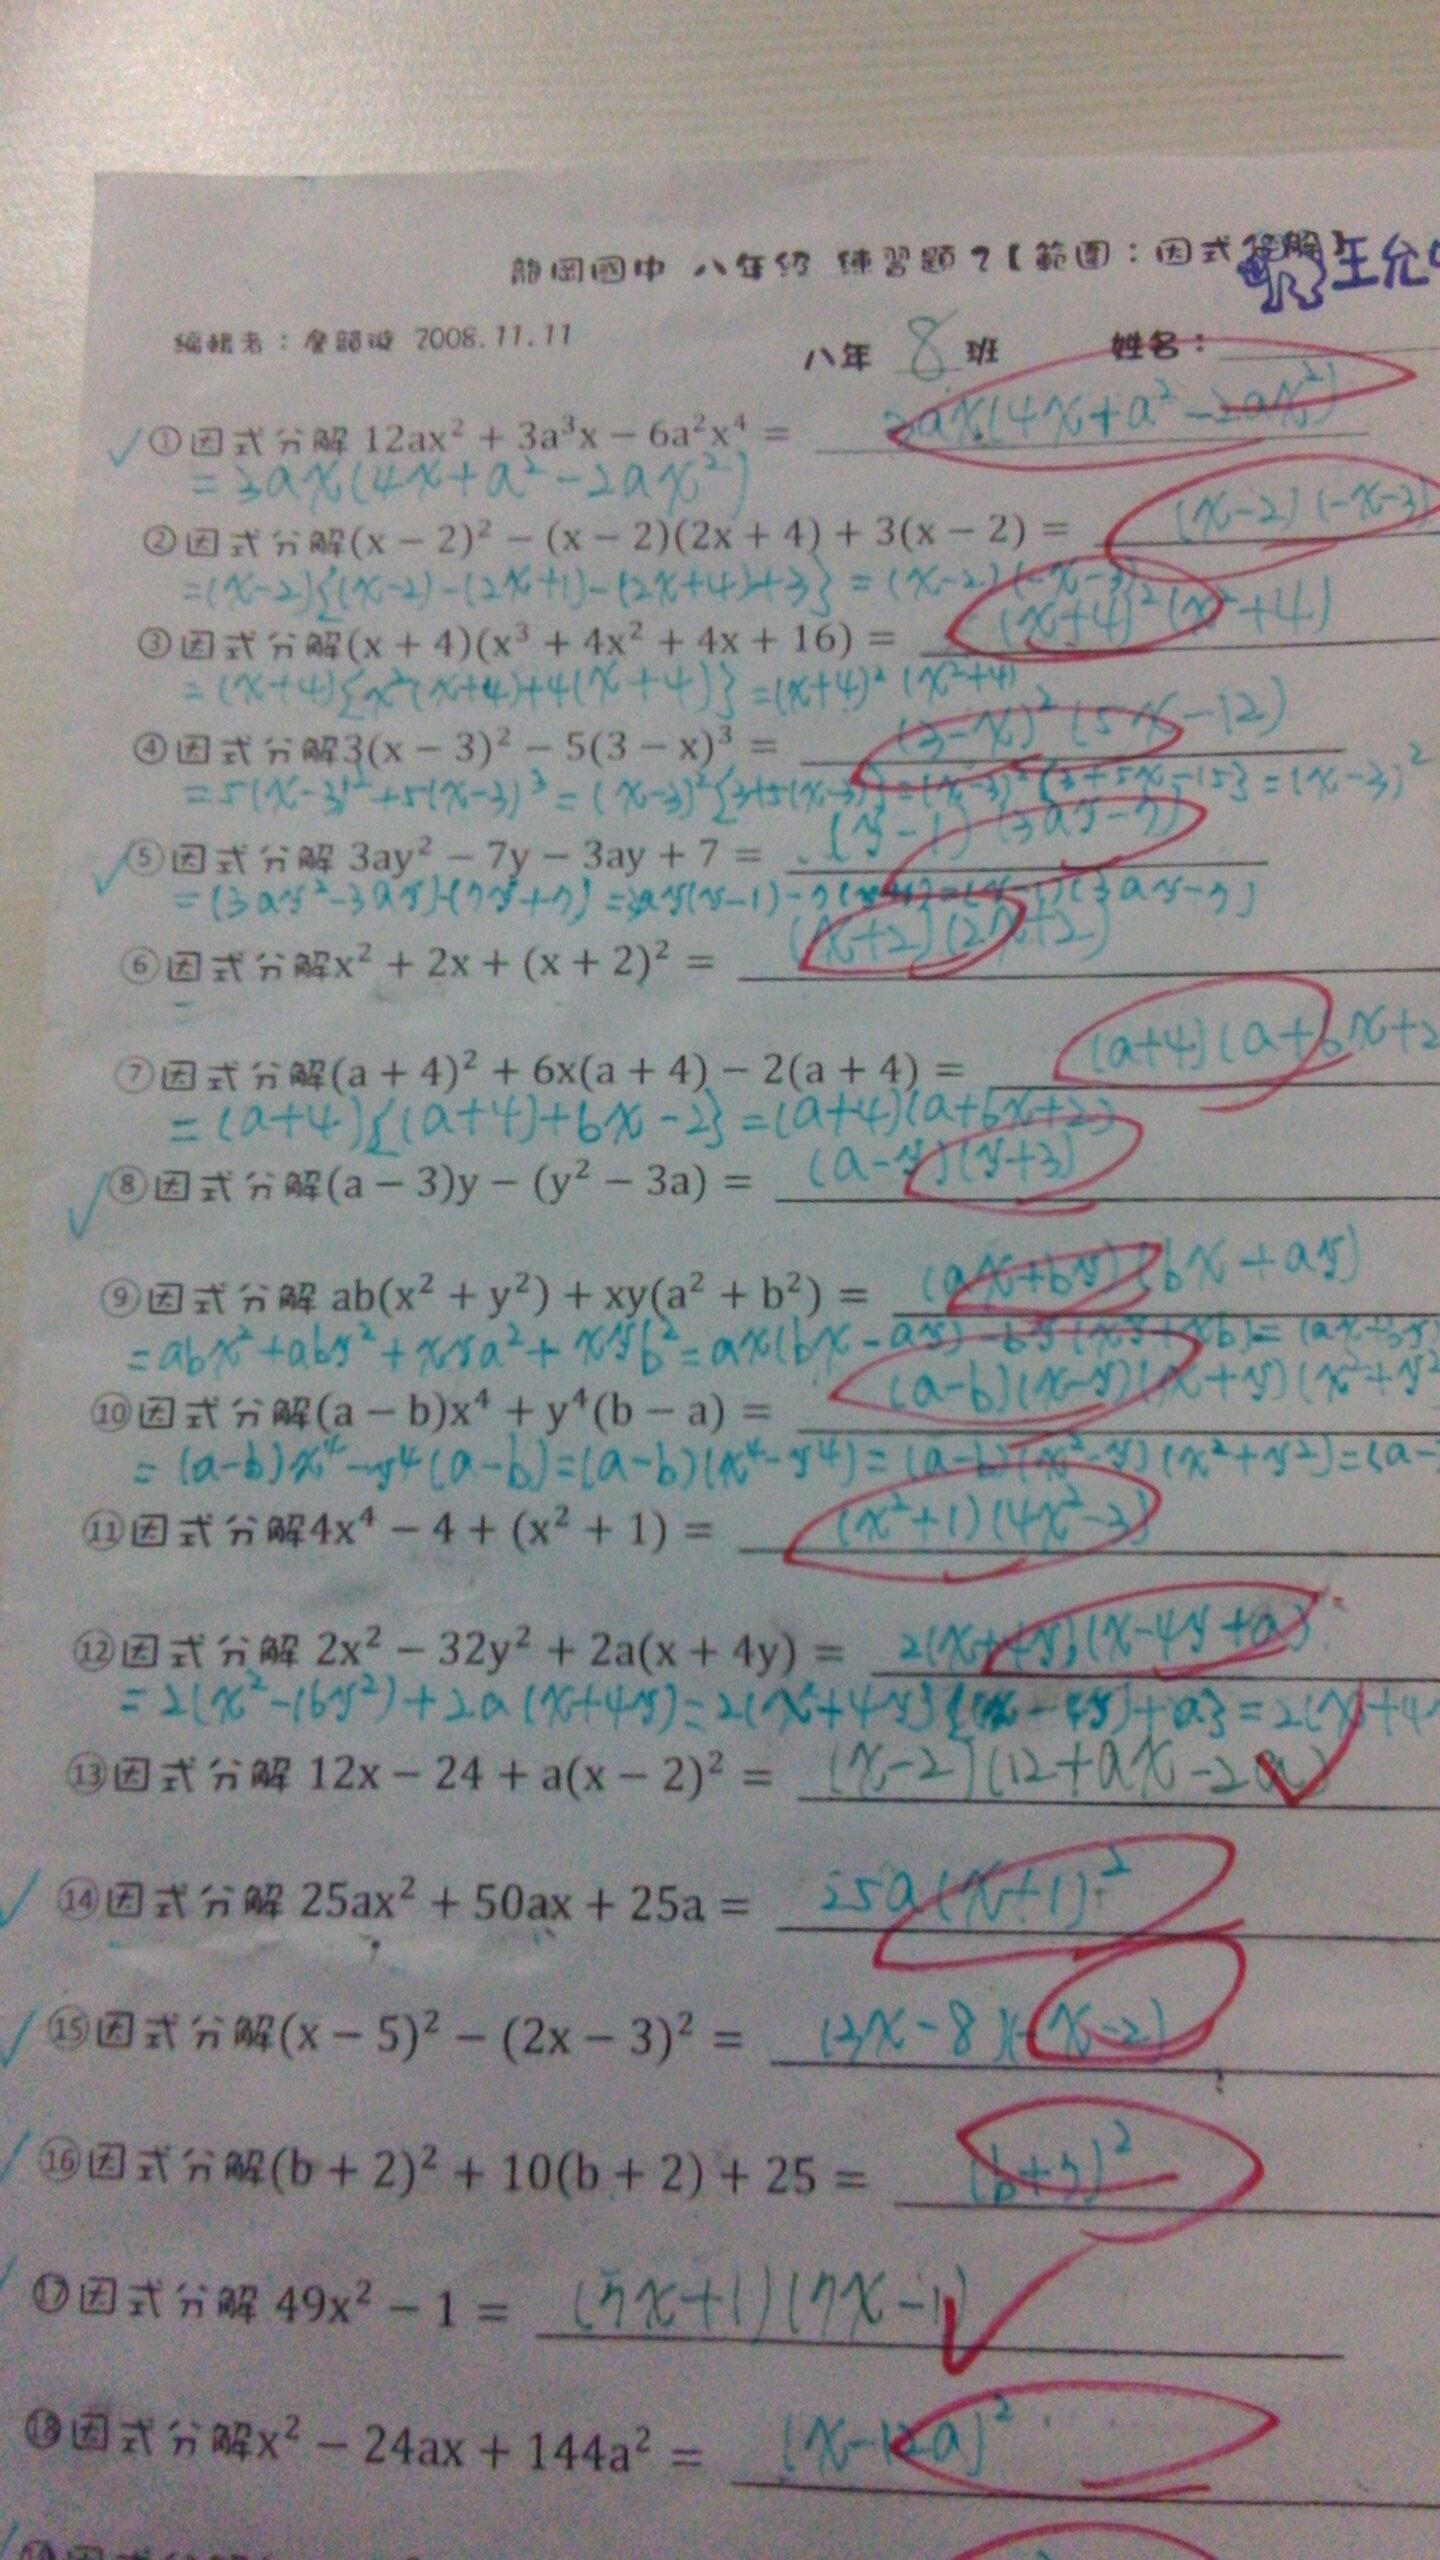 龍岡國中 八年級 練習題7【範圍：因式分解】 王允
編輯者：詹韻璇 2008.11.11 八年 8 班 姓名：
✓ ①因式分解 12ax² + 3a³x − 6a²x⁴ = 3ax(4x+a²-2ax²)
=3ax(4x+a²-2ax²)
②因式分解(x − 2)² − (x − 2)(2x + 4) + 3(x − 2) = (x-2)(-x-3)
=(x-2){(x-2)-(2x+1)-(2x+4)+3} = (x-2)(-x-3)
③因式分解(x + 4)(x³ + 4x² + 4x + 16) = (x+4)²(x²+4)
=(x+4){x²(x+4)+4(x+4)} =(x+4)²(x²+4)
④因式分解3(x − 3)² − 5(3 − x)³ = (3-x)²(5x-12)
=5(x-3)²+5(x-3)³ = (x-3)²{3+5(x-3)}=(x-3)²{3+5x-15} =(x-3)²
✓ ⑤因式分解 3ay² − 7y − 3ay + 7 = (y-1)(3ay-7)
=(3ay²-3ay)-(7y+7) =3ay(y-1)-7(y-1)=(y-1)(3ay-7)
⑥因式分解x² + 2x + (x + 2)² = (x+2)(2x+2)
=
⑦因式分解(a + 4)² + 6x(a + 4) − 2(a + 4) = (a+4)(a+6x+2
=(a+4){(a+4)+6x-2} =(a+4)(a+6x+2)
✓ ⑧因式分解(a − 3)y − (y² − 3a) = (a-y)(y+3)
⑨因式分解 ab(x² + y²) + xy(a² + b²) = (ax+by)(bx+ay)
=abx²+aby²+xya²+xyb²=ax(bx-ay) = (ax+by)
⑩因式分解(a − b)x⁴ + y⁴(b − a) = (a-b)(x-y)(x+y)(x²+y²
=(a-b)x⁴-y⁴(a-b)=(a-b)(x⁴-y⁴)=(a-b)(x²-y)(x²+y²)=(a-
⑪因式分解4x⁴ − 4 + (x² + 1) = (x²+1)(4x²-3)
⑫因式分解 2x² − 32y² + 2a(x + 4y) = 2(x+4y)(x-4y+a)
=2(x²-16y²)+2a(x+4y)=2(x+4y){(x-4y)+a} =2(x+4
⑬因式分解 12x − 24 + a(x − 2)² = (x-2)(12+ax-2a)
✓ ⑭因式分解 25ax² + 50ax + 25a = 25a(x+1)²
✓ ⑮因式分解(x − 5)² − (2x − 3)² = (3x-8)(-x-2)
✓ ⑯因式分解(b + 2)² + 10(b + 2) + 25 = (b+7)²
⑰因式分解 49x² − 1 = (7x+1)(7x-1)
⑱因式分解x² − 24ax + 144a² = (x-12a)²